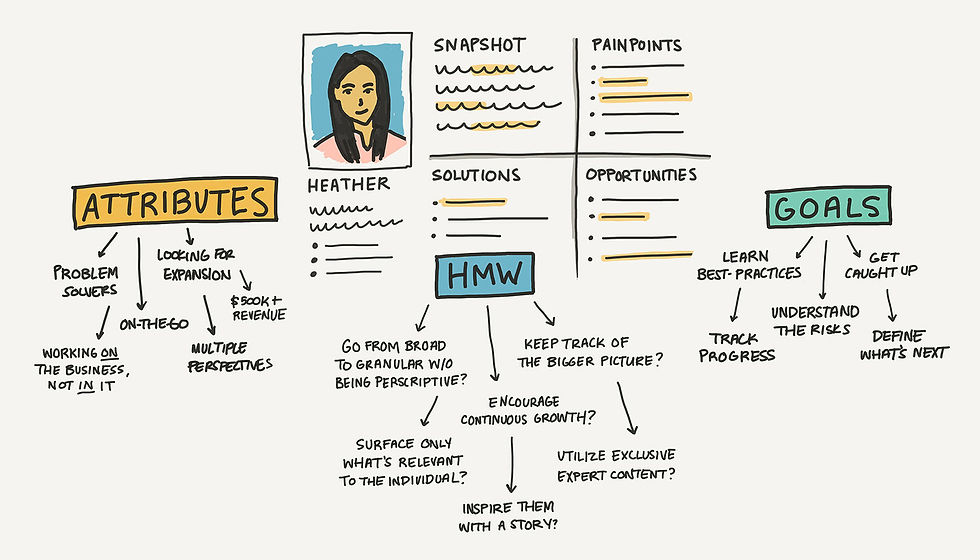 SNAPSHOT
PAINPOINTS
HEATHER
SOLUTIONS
OPPORTUNITIES
ATTRIBUTES
PROBLEM
SOLVERS
WORKING ON
THE BUSINESS,
NOT IN IT
ON-THE-GO
LOOKING FOR
EXPANSION
$500K+
REVENUE
MULTIPLE
PERSPECTIVES
HMW
GO FROM BROAD
TO GRANULAR W/O
BEING PERSCRIPTIVE?
SURFACE ONLY
WHAT'S RELEVANT
TO THE INDIVIDUAL?
ENCOURAGE
CONTINUOUS GROWTH?
INSPIRE THEM
WITH A STORY?
KEEP TRACK OF
THE BIGGER PICTURE?
UTILIZE EXCLUSIVE
EXPERT CONTENT?
GOALS
LEARN
BEST-PRACTICES
TRACK
PROGRESS
UNDERSTAND
THE RISKS
GET
CAUGHT UP
DEFINE
WHAT'S NEXT